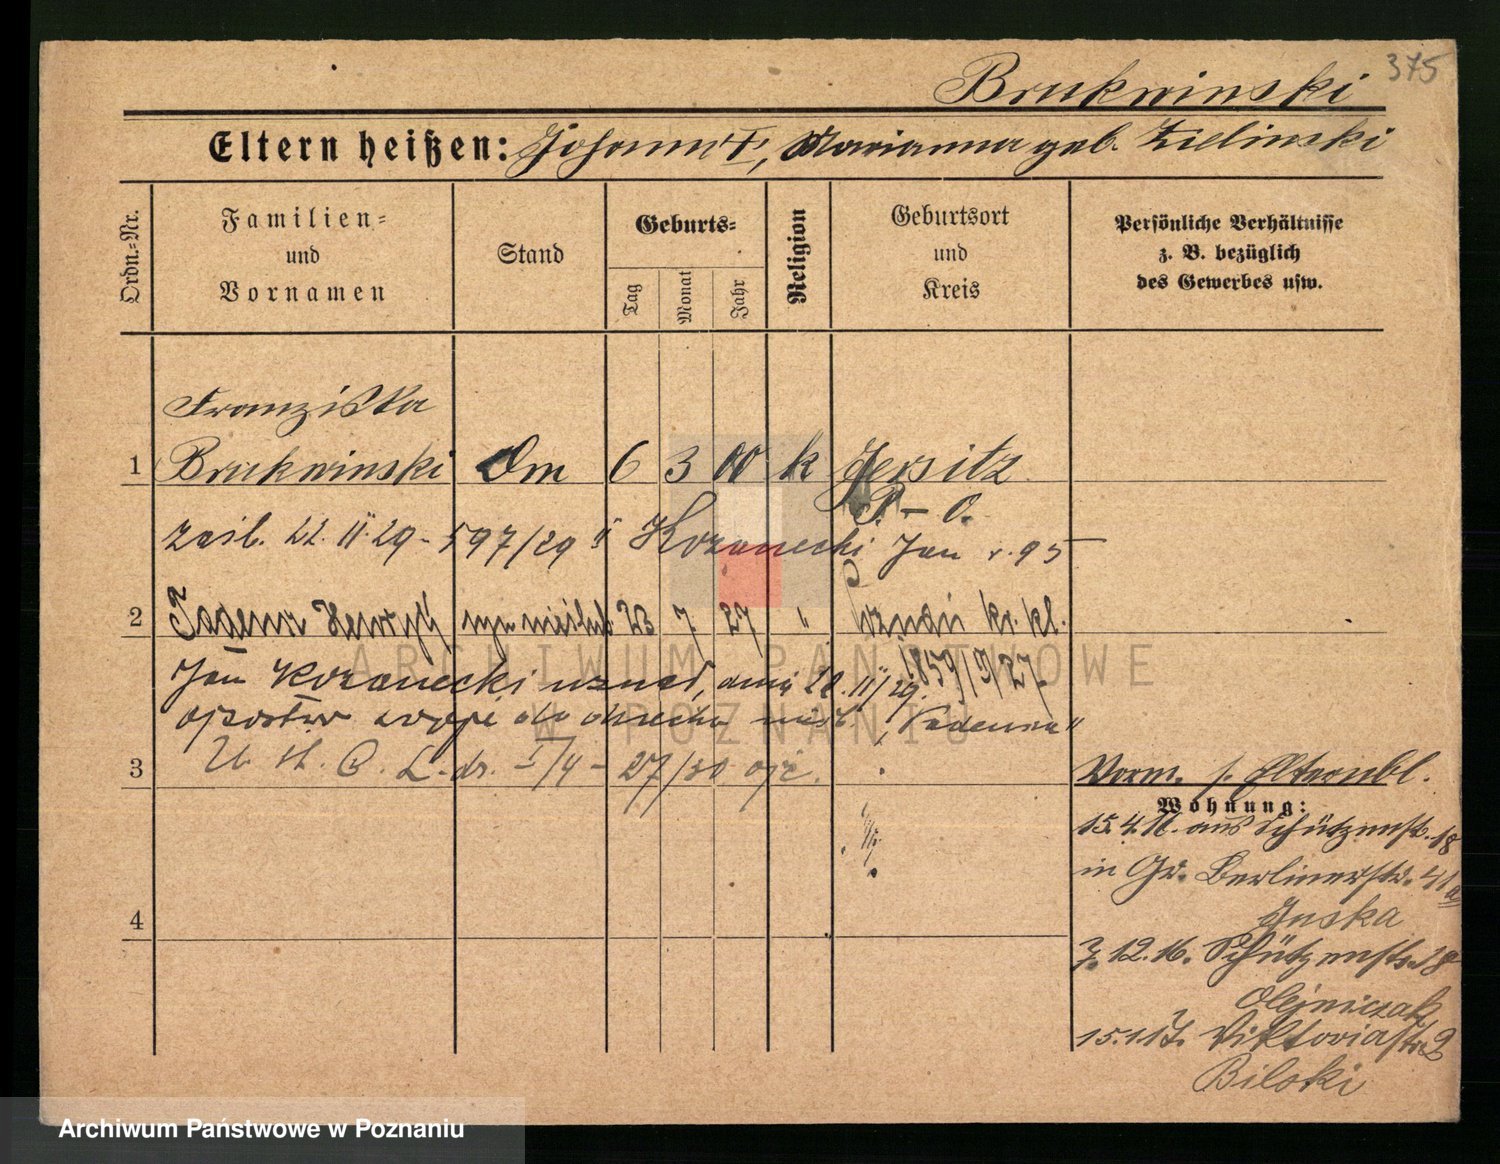 375
Brukwinski
Eltern heißen: Johann †, Marianna geb. Zielinski
Ordn.-Nr.
Familien-
und
Vornamen
Stand
Geburts-
Tag
Monat
Jahr
Religion
Geburtsort
und
Kreis
Persönliche Verhältnisse
z. B. bezüglich
des Gewerbes usw.
Franziska
1 Brukwinski Dm 6 3 00 k Jersitz
P. - O.
zaśl. 22. II. 29 - 597/29 Kozanecki Jan r. 95
2 Tadeusz Henryk syn nieślub. 23 7 27 " Poznań
1859/9/27
Jan Kozanecki uznał, dnia 20. II/29.
ojcostwo swoje do dziecka "Tadeusza"
3 U. St. C. L. dz. I/4 - 27/30
Vorm. s. Elternbl.
Wohnung:
15.4.16. aus Schützenstr. 18
in Gr. Berlinerstr. 41a
Juska
7.12.16. Schützenstr. 18
Olejniczak
4
15.1.17. Viktoriastr. 2
Bilski
ARCHIWUM PAŃSTWOWE
W POZNANIU
Archiwum Państwowe w Poznaniu